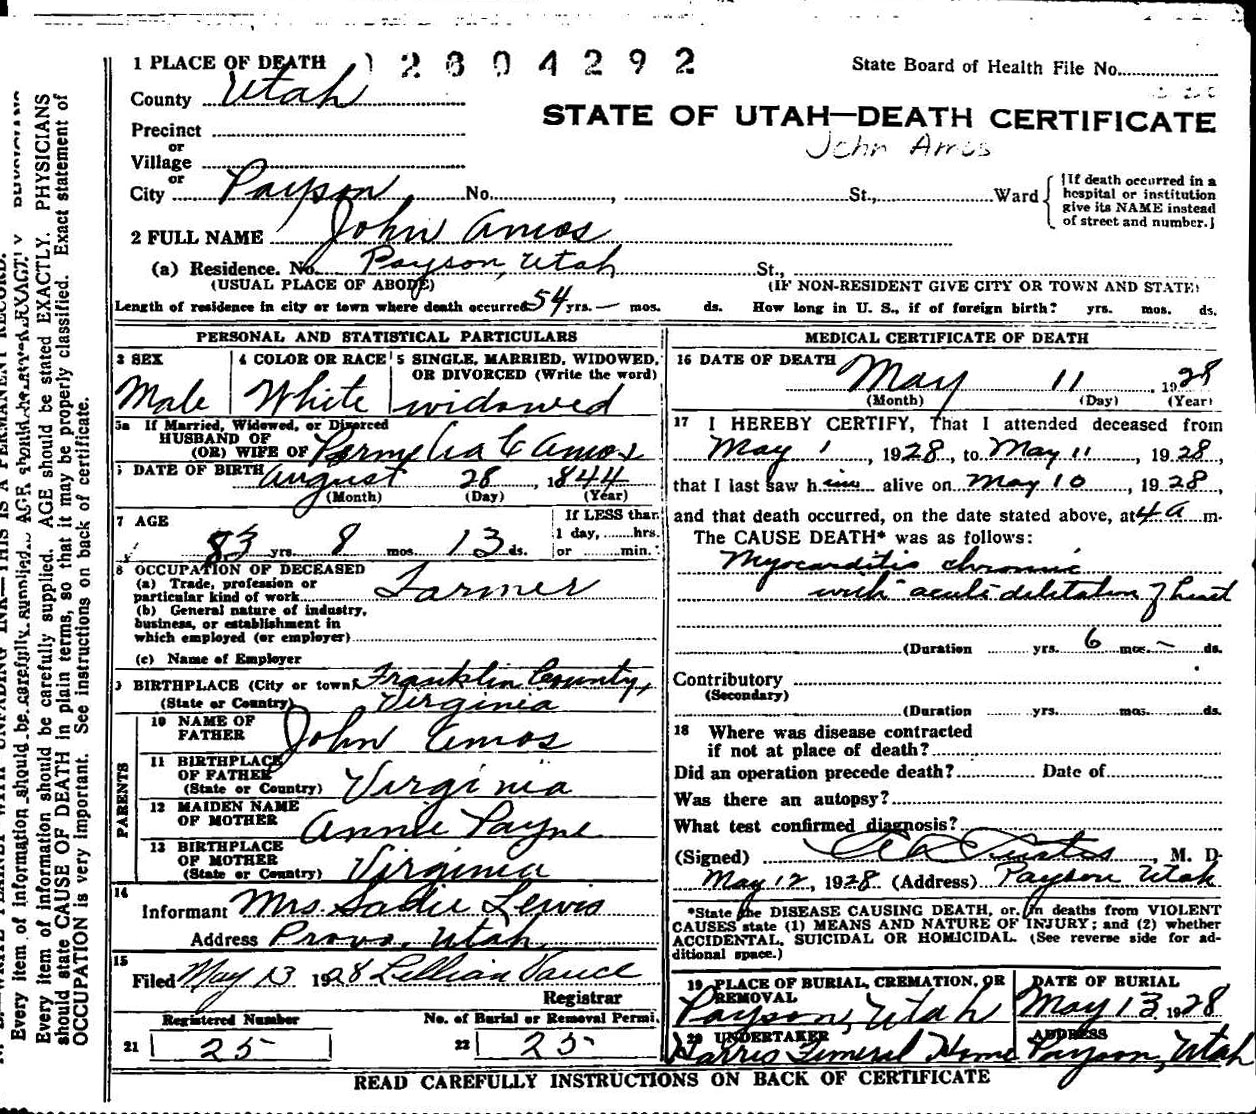 1 PLACE OF DEATH 12604292 State Board of Health File No.
County Utah
STATE OF UTAH—DEATH CERTIFICATE
Precinct
or
John Amos
Village
or
City Payson No. , St., Ward {If death occurred in a hospital or institution give its NAME instead of street and number.}
2 FULL NAME John Amos
(a) Residence. No. Payson, Utah St.,
(USUAL PLACE OF ABODE) (IF NON-RESIDENT GIVE CITY OR TOWN AND STATE)
Length of residence in city or town where death occurred 54 yrs. — mos. ds. How long in U. S., if of foreign birth? yrs. mos. ds.
PERSONAL AND STATISTICAL PARTICULARS
3 SEX
Male
4 COLOR OR RACE
White
5 SINGLE, MARRIED, WIDOWED,
OR DIVORCED (Write the word)
widowed
5a If Married, Widowed, or Divorced
HUSBAND OF
(OR) WIFE OF Permelia C Amos
DATE OF BIRTH August 28, 1844
(Month) (Day) (Year)
7 AGE
83 yrs. 8 mos. 13 ds.
If LESS than
1 day, hrs.
or min.
8 OCCUPATION OF DECEASED
(a) Trade, profession or
particular kind of work Farmer
(b) General nature of industry,
business, or establishment in
which employed (or employer)
(c) Name of Employer
BIRTHPLACE (City or town) Franklin County,
(State or Country) Virginia
PARENTS
10 NAME OF
FATHER John Amos
11 BIRTHPLACE
OF FATHER
(State or Country) Virginia
12 MAIDEN NAME
OF MOTHER Annie Payne
13 BIRTHPLACE
OF MOTHER
(State or Country) Virginia
14
Informant Mrs. Sadie Lewis
Address Provo, Utah
15
Filed May 13 1928 Lillian Vance
Registrar
Registered Number No. of Burial or Removal Permi.
21 25 22 25
MEDICAL CERTIFICATE OF DEATH
16 DATE OF DEATH
May 11, 1928
(Month) (Day) (Year)
17 I HEREBY CERTIFY, That I attended deceased from
May 1, 1928, to May 11, 1928,
that I last saw him alive on May 10, 1928,
and that death occurred, on the date stated above, at 4 a m.
The CAUSE DEATH* was as follows:
Myocarditis chronic
with acute diletation of heart
(Duration yrs. 6 mos. — ds.
Contributory
(Secondary)
(Duration yrs. mos. ds.
18 Where was disease contracted
if not at place of death?
Did an operation precede death? Date of
Was there an autopsy?
What test confirmed diagnosis?
(Signed) , M. D.
May 12, 1928 (Address) Payson Utah
*State the DISEASE CAUSING DEATH, or, in deaths from VIOLENT
CAUSES state (1) MEANS AND NATURE OF INJURY; and (2) whether
ACCIDENTAL, SUICIDAL OR HOMICIDAL. (See reverse side for ad-
ditional space.)
19 PLACE OF BURIAL, CREMATION, OR
REMOVAL
Payson, Utah
DATE OF BURIAL
May 13 1928
20 UNDERTAKER
Harris Funeral Home
ADDRESS
Payson, Utah
READ CAREFULLY INSTRUCTIONS ON BACK OF CERTIFICATE
Every item of information should be carefully supplied. AGE should be stated EXACTLY. PHYSICIANS
should state CAUSE OF DEATH in plain terms, so that it may be properly classified. Exact statement of
OCCUPATION is very important. See instructions on back of certificate.